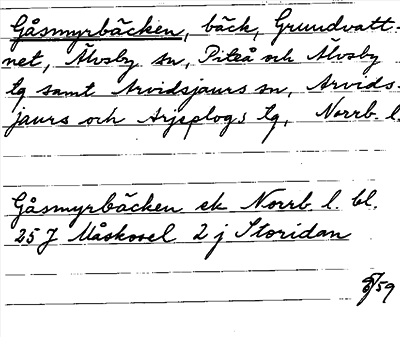 Gåsmyrbäcken, bäck, Grundvatt-
net, Älvsby sn, Piteå och Älvsby
tg samt Arvidsjaurs sn, Arvids-
jaurs och Arjeplogs tg, Norrb. l.
Gåsmyrbäcken ek Norrb l. bl.
25 J Måskosel 2 j Storidan
/59